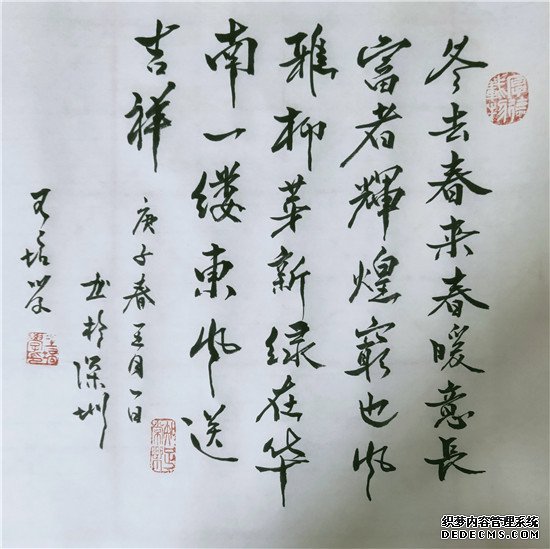 冬去春来春暖意長
富者輝煌窮也风
雅柳芽新绿在华
南一缕東风送
吉祥
庚子春王月一日
书於深圳
王培学
厚德載物
织梦内容管理系统
DEDECMS.COM